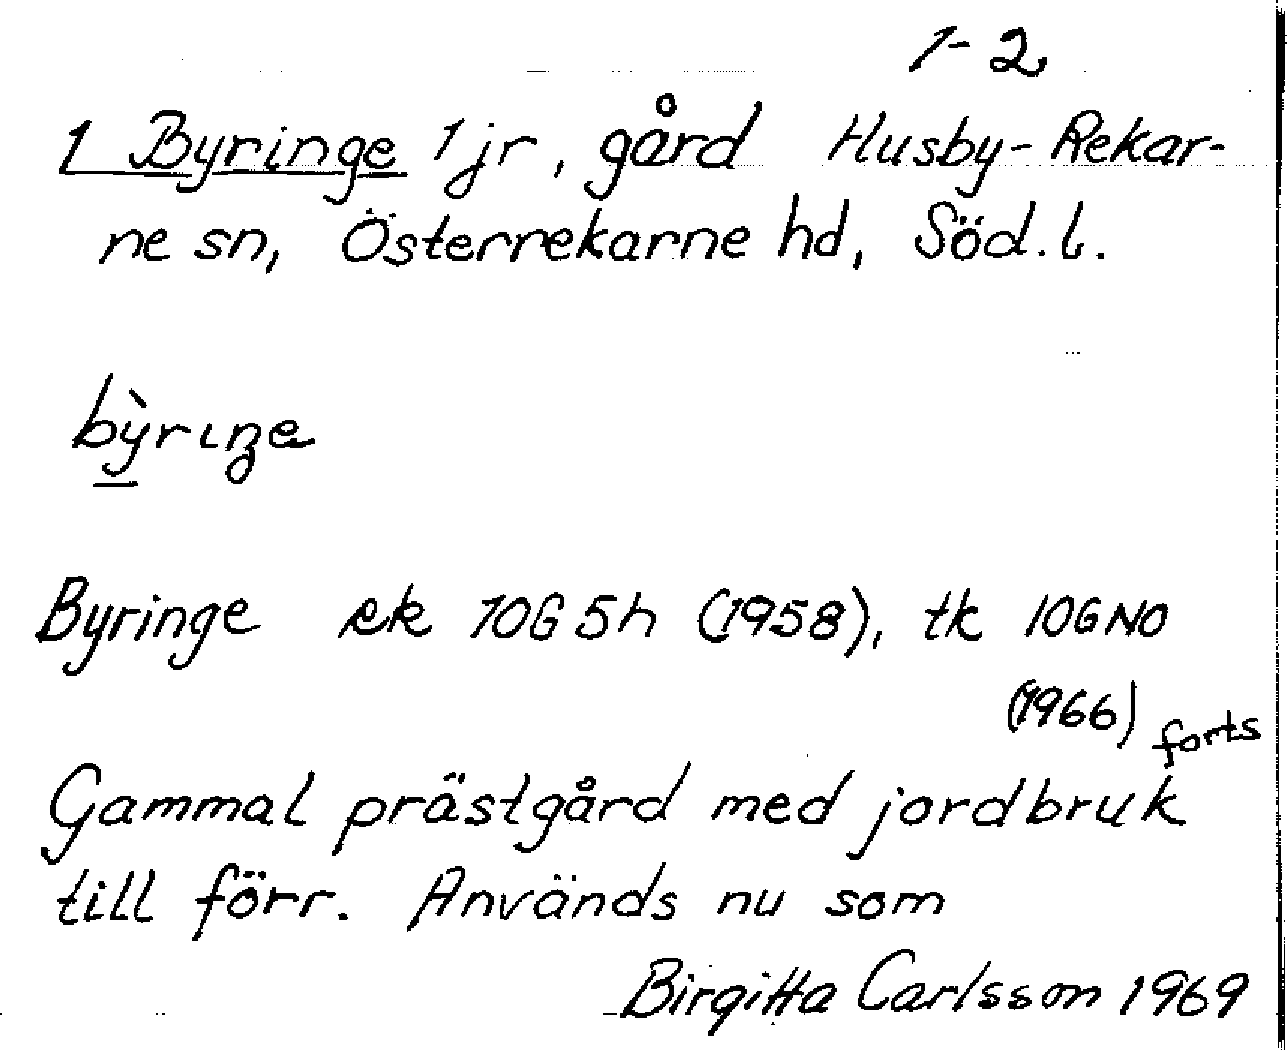 1-2
1 Byringe 1 jr, gård Husby-Rekar-
ne sn, Österrekarne hd, Söd. l.
bỳrıŋe
Byringe ek 10G 5h (1958), tk 10G NO
(1966) forts
Gammal prästgård med jordbruk
till förr. Används nu som
Birgitta Carlsson 1969